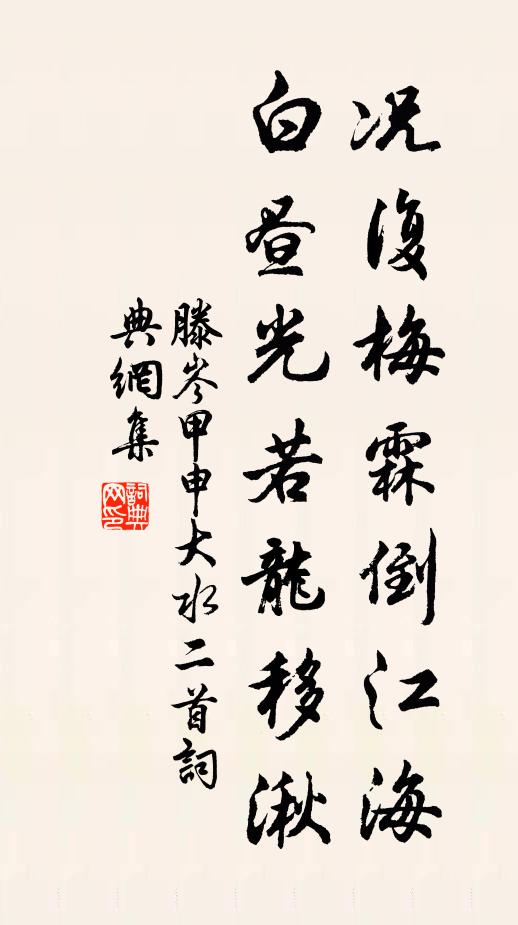 况復梅霖倒江海
白昼光若龍移湫
滕岑甲申大水二首詞
典網集
詞典
网印